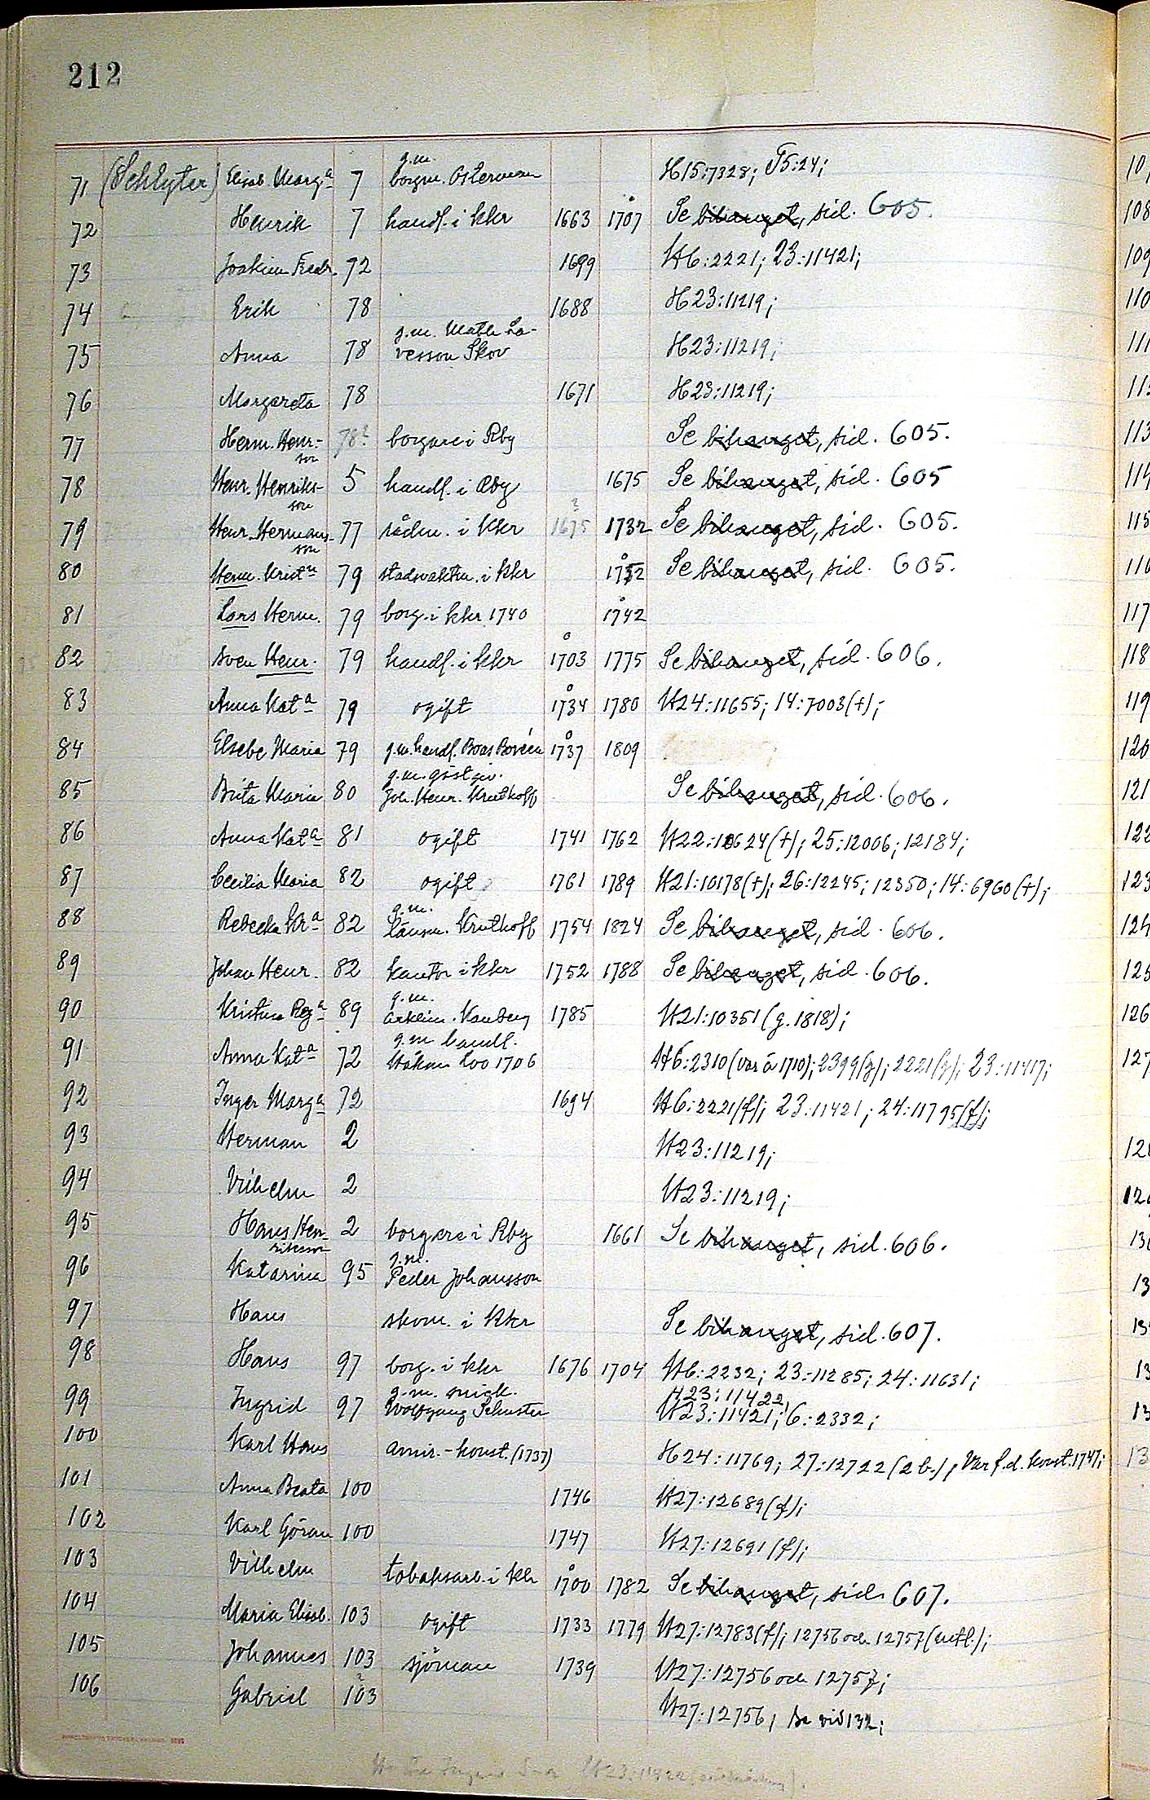 212
71 (Schlyter) Elisab. Marg:a 7 g.m. borgm. Osterman H15:7328; T5:24;
72 Henrik 7 handl. i kkr 1663 1707 Se bihanget, sid. 605.
73 Joakim Fredr. 72 1699 H6:2221; 23:11421;
74 Erik 78 1688 H23:11219;
75 Anna 78 g.m. Math La-
vesson Skov H23:11219;
76 Margareta 78 1671 H23:11219;
77 Herm. Henr-
son 78? borgare i Rby Se bihanget, sid. 605.
78 Henr. Henriks-
son 5 handl. i Rby 1675 Se bihanget, sid. 605
79 Henr. Hermans-
son 77 rådm. i kkr 1675 ? 1732 Se bihanget, sid. 605.
80 Herm. Krist:n 79 stadsvaktm. i kkr Se bihanget, sid. 605.
81 Lars Herm. 79 borg. i kkr 1740 1742
82 Sven Henr. 79 handl. i kkr 1703 1775 Se bihanget, sid. 606.
83 Anna Kat:a 79 ogift 1734 1780 H24:11655; 14:7003(+);
84 Elsebe Maria 79 g.m. handl. Boas Bovéen 1737 1809
85 Brita Maria 80 g.m. gästgiv.
Joh. Henr. Kruthoff Se bihanget, sid. 606.
86 Anna Kat:a 81 ogift 1741 1762 H22:10624(+); 25:12006; 12184;
87 Cecilia Maria 82 ogift 1761 1789 H21:10178(+); 26:12245; 12350; 14:6960(+);
88 Rebecka Kr:a 82 g.m. länsm. Kruthoff 1754 1824 Se bihanget, sid. 606.
89 Johan Henr. 82 kantor i kkr 1752 1788 Se bihanget, sid. 606.
90 Kristina Reg:a 89 g.m. 1785 H21:10351 (g. 1818);
91 Anna Kat:a 72 g.m handl.
Håkan Loo 1706 H6:2310 (var å 1710); 2399(g); 2221(g); 23:11417;
92 Inger Marg:a 72 1694 H6:2221(f); 23:11421; 24:11795(f);
93 Herman 2 H23:11219;
94 Vilhelm 2 H23:11219;
95 Hans Hen-
riksson 2 borgare i Rby 1661 Se bihanget, sid. 606.
96 Katarina 95 g.m. Peder Johansson
97 Hans skom. i kkr Se bihanget, sid. 607.
98 Hans 97 borg. i kkr 1676 1704 H6:2232; 23:11285; 24:11631;
99 Ingrid 97 g.m. snick.
Wolfgang Schuster H23:11422,
H23:11421; 6:2332;
100 Karl Hans amir.-konst. (1737) H24:11769; 27:12722 (2 b.); Var f.d. konst. 1747;
101 Anna Beata 100 1746 H27:12689(f);
102 Karl Göran 100 1747 H27:12691(f);
103 Vilhelm tobaksarb. i kkr 1700 1782 Se bihanget, sid. 607.
104 Maria Elisab. 103 ogift 1733 1779 H27:12783(f); 12756 och 12757 (utfl.);
105 Johannes 103 sjöman 1739 H27:12756 och 12757;
106 Gabriel 103 ? H27:12756, Se vid 132;
10
108
109
110
111
113
114
115
116
117
118
119
120
121
122
123
124
125
126
127